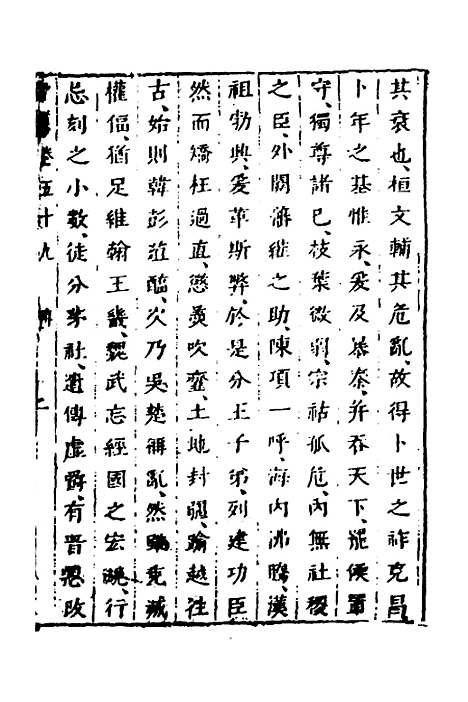 其衰也、桓文輔其危亂、故得卜世之祚克昌
卜年之基惟永、爰及暴秦、并吞天下、罷侯置
守、獨尊諸己、枝葉微弱、宗祏孤危、內無社稷
之臣、外闕藩維之助、陳項一呼、海內沸騰、漢
祖勃興、爰革斯弊、於是分王子弟、列建功臣
然而矯枉過直、懲羹吹虀、土地封疆、踰越往
古、始則韓彭葅醢、次乃吳楚稱亂、然雖克滅
權偪、猶足維翰王畿、魏武忘經國之宏規、行
忌刻之小數、徒分茅社、遺傳虛爵、有晉思改
卷五十九